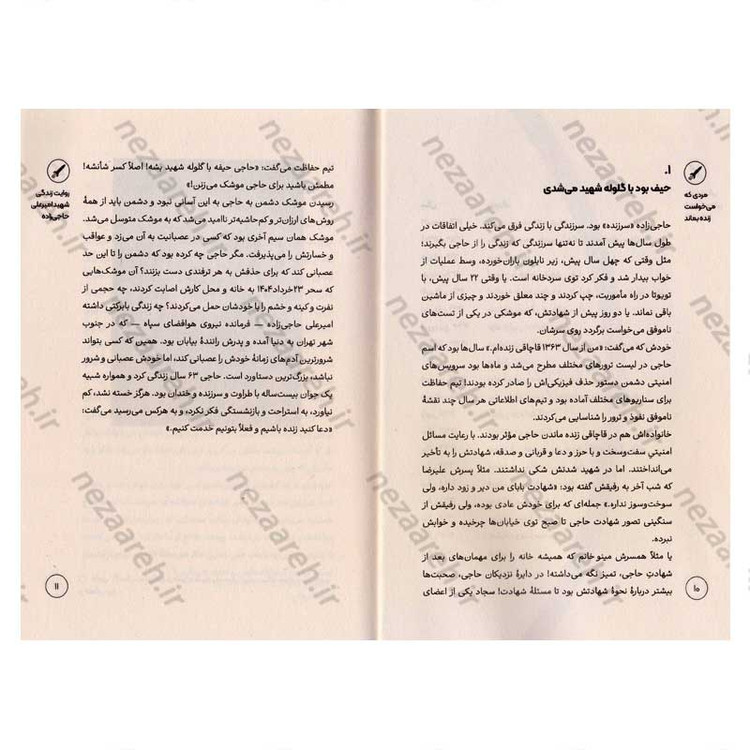 مردی که
می‌خواست
زنده بماند
۱.
حیف بود با گلوله شهید می‌شدی
حاجی‌زاده «سرزنده» بود. سرزندگی با زندگی فرق می‌کند. خیلی اتفاقات در
طول سال‌ها پیش آمدند تا نه‌تنها سرزندگی که زندگی را از حاجی بگیرند؛
مثل وقتی که چهل سال پیش، زیر نایلون باران‌خورده، وسط عملیات از
خواب بیدار شد و فکر کرد توی سردخانه است. یا وقتی ۲۲ سال پیش، با
تویوتا در راه مأموریت، چپ کردند و چند معلق خوردند و چیزی از ماشین
باقی نماند. یا دو روز پیش از شهادتش، که موشکی در یکی از تست‌های
ناموفق می‌خواست برگردد روی سرشان.
خودش که می‌گفت: «من از سال ۱۳۶۳ قاچاقی زنده‌ام.» سال‌ها بود که اسم
حاجی در لیست ترورهای مختلف مطرح می‌شد و ماه‌ها بود سرویس‌های
امنیتی دشمن دستور حذف فیزیکی‌اش را صادر کرده بودند! تیم حفاظت
برای سناریوهای مختلف آماده بود و تیم‌های اطلاعاتی هر سال چند نقشهٔ
ناموفق نفوذ و ترور را شناسایی می‌کردند.
خانواده‌اش هم در قاچاقی زنده ماندن حاجی مؤثر بودند. با رعایت مسائل
امنیتیِ سفت‌وسخت و با حرز و دعا و قربانی و صدقه، شهادتش را به تأخیر
می‌انداختند. اما در شهید شدنش شکی نداشتند. مثلاً پسرش علیرضا
که شب آخر به رفیقش گفته بود: «شهادت بابای من دیر و زود داره، ولی
سوخت‌وسوز نداره.» جمله‌ای که برای خودش عادی بوده، ولی رفیقش از
سنگینی تصور شهادت حاجی تا صبح توی خیابان‌ها چرخیده و خوابش
نبرده.
یا مثلاً همسرش مینو خانم که همیشه خانه را برای مهمان‌های بعد از
شهادتِ حاجی، تمیز نگه می‌داشته! در دایرهٔ نزدیکان حاجی، صحبت‌ها
بیشتر دربارهٔ نحوهٔ شهادتش بود تا مسئلهٔ شهادت! سجاد یکی از اعضای
۱۰
روایت زندگی
شهید امیرعلی
حاجی‌زاده
تیم حفاظت می‌گفت: «حاجی حیفه با گلوله شهید بشه! اصلاً کسر شأنشه!
مطمئن باشید برای حاجی موشک می‌زنن!»
رسیدن موشک دشمن به حاجی به این آسانی نبود و دشمن باید از همهٔ
روش‌های ارزان‌تر و کم‌حاشیه‌تر ناامید می‌شد که به موشک متوسل می‌شد.
موشک همان سیم آخری بود که کسی در عصبانیت به آن می‌زد و عواقب
و خسارتش را می‌پذیرفت. مگر حاجی چه کرده بود که دشمن را تا این حد
عصبانی کند که برای حذفش به هر ترفندی دست بزنند؟ آن موشک‌هایی
که سحر ۲۳ خرداد ۱۴۰۴ به خانه و محل کارش اصابت کردند، چه حجمی از
نفرت و کینه و خشم را با خودشان حمل می‌کردند؟ چه زندگی بابرکتی داشته
امیرعلی حاجی‌زاده — فرمانده نیروی هوافضای سپاه — که در جنوب
شهر تهران به دنیا آمده و پدرش رانندهٔ بیابان بود. همین که کسی بتواند
شرورترین آدم‌های زمانهٔ خودش را عصبانی کند، اما خودش عصبانی و شرور
نباشد، بزرگ‌ترین دستاورد است. حاجی ۶۳ سال زندگی کرد و همواره شبیه
یک جوان بیست‌ساله با طراوت و سرزنده و خندان بود. هرگز خسته نشد، کم
نیاورد، به استراحت و بازنشستگی فکر نکرد، و به هرکس می‌رسید می‌گفت:
«دعا کنید زنده باشیم و فعلاً بتونیم خدمت کنیم.»
۱۱
nezaareh.ir
nezaareh.ir
nezaareh.ir
nezaareh.ir
nezaareh.ir
nezaareh.ir
nezaareh.ir
nezaareh.ir